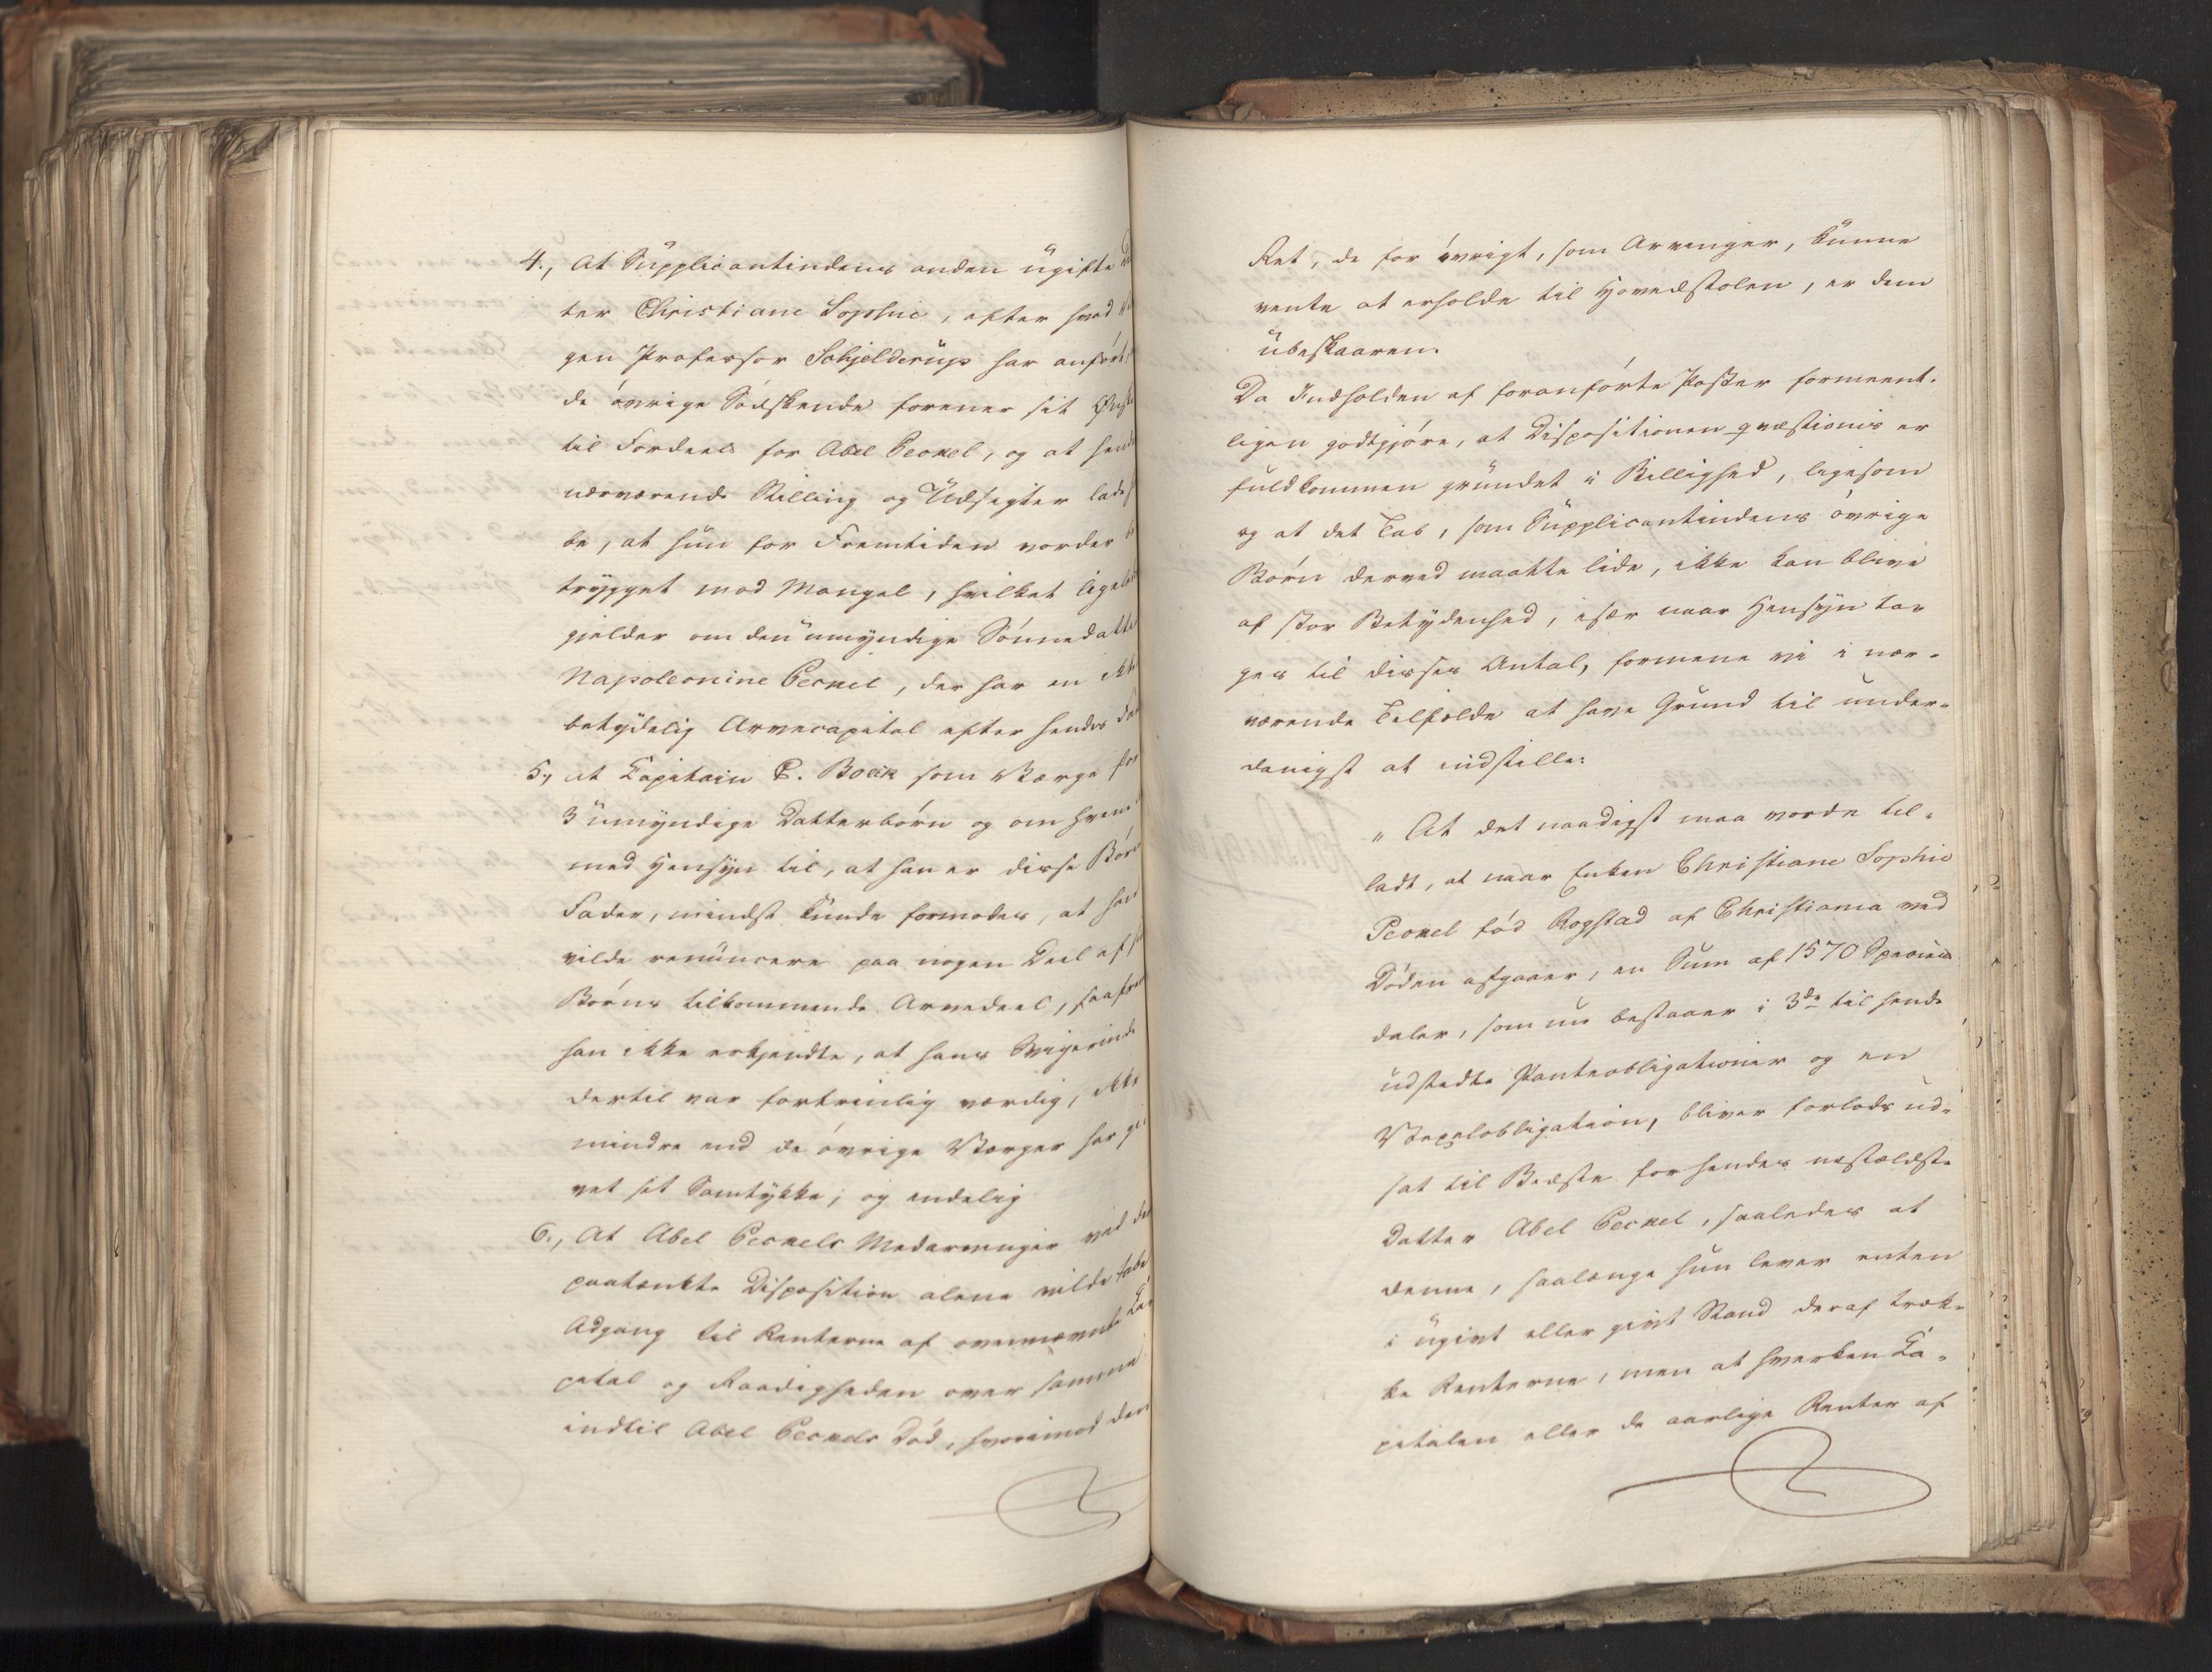 4., At Supplicantindens anden ugifte
ter Christiane Sophie, efter hvad
gen Professor Schjelderup har anført,
de øvrige Sødskende forener sit Ønske
til Fordeel for Abel Peckel, og at hendes
nærværende Stilling og Udsigter lade
be, at hun for Fremtiden vorder
trygget mod Mangel, hvilket ligeledes
gjelder om den umyndige Sønnedatter
Napoleonine Peckel, der har en ikke
betydelig Arvecapital efter hendes
5., at Capitain C. Boeck som Værge for
3 umyndige Datterbørn og om hvem
med Hensyn til, at han er disse Børns
Fader, mindst kunde formodes, at han
vilde renuncere paa nogen Deel af
Børns tilkommende Arvedeel, saafremt
han ikke erkjendte, at hans Svigerinde
dertil var fortrinlig værdig, ikke
mindre end de øvrige Værger har gi-
vet sit Samtykke; og endelig
6., At Abel Peckels Medarvinger ved den
paatænkte Disposition alene vilde tabe
Adgang til Renterne af ovennævnte Ca-
pital og Raadigheden over samme
indtil Abel Peckels Død, hvorimod den
Ret, de for øvrigt, som Arvinger, kunne
vente at erholde til Hovedstolen, er dem
ubeskaaren.
Da Indholden af foranførte Poster formeent-
ligen godtgjøre, at Dispositionen qvæstionis er
fuldkommen grundet i Billighed, ligesom
og at det Tab, som Supplicantindens øvrige
Børn derved maatte lide, ikke kan blive
af stor Betydenhed, især naar Hensyn ta-
ges til disses Antal, formene vi i nær-
værende Tilfælde at have Grund til under-
danigst at indstille:
"At det naadigst maa vorde til-
ladt, at naar Enken Christiane Sophie
Peckel fød Rogstad af Christiania ved
Døden afgaaer, en Sum af 1570 Species-
daler, som nu bestaaer i 3de til hende
udstedte Panteobligationer og en
Vexelobligation, bliver forlods ud-
sat til Bedste for hendes næstældste
Datter Abel Peckel, saaledes at
denne, saalænge hun lever enten
i ugivt eller givt Stand deraf træk-
ke Renterne, men at hverken Ca-
pitalen eller de aarlige Renter af